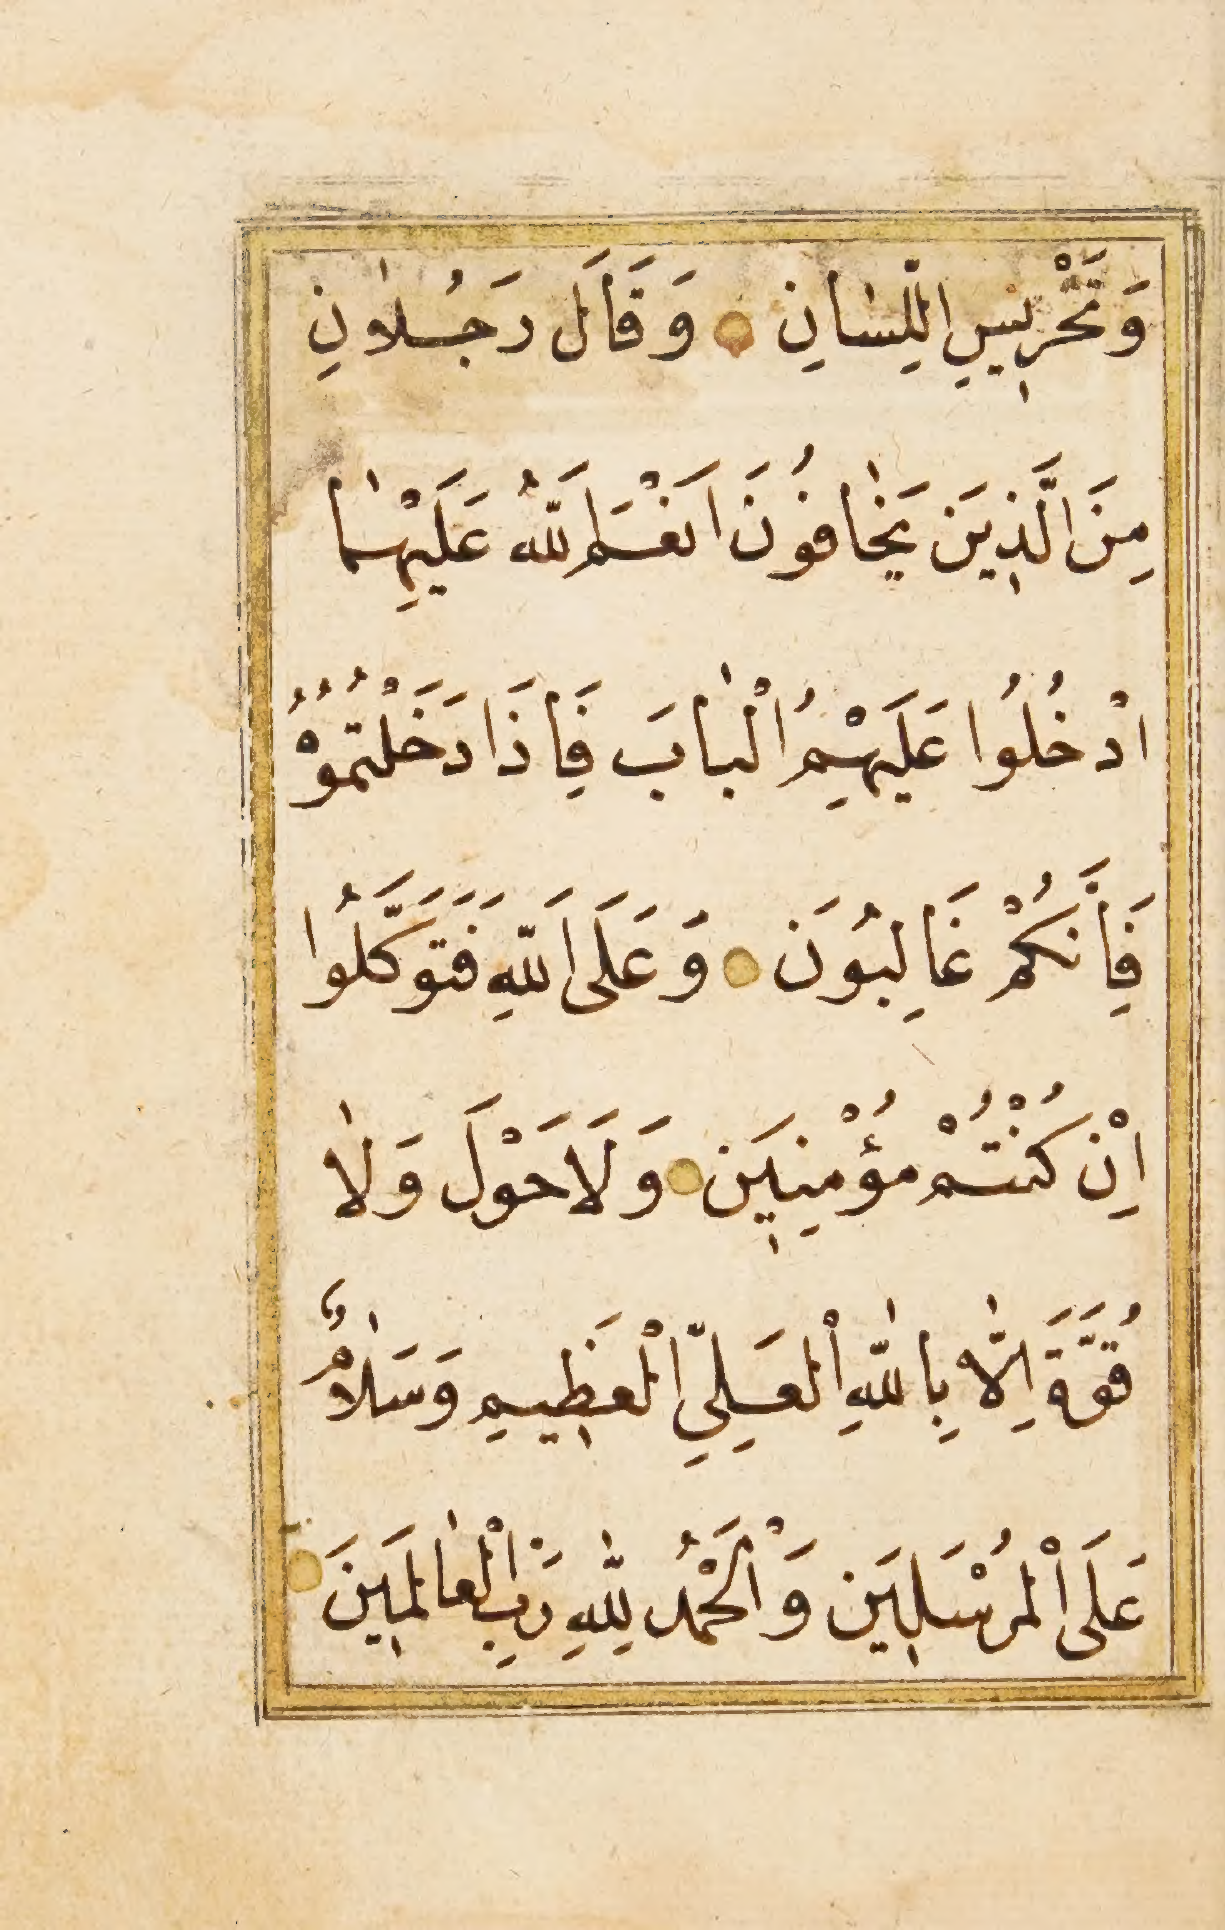 وَتَخْرِيسِ اللِّسَانِ ۝ وَقَالَ رَجُلَانِ
مِنَ الَّذِينَ يَخَافُونَ اَنْعَمَ اللّٰهُ عَلَيْهِمَا
ادْخُلُوا عَلَيْهِمُ الْبَابَ فَاِذَا دَخَلْتُمُوُهْ
فَاِنَّكُمْ غَالِبُونَ ۝ وَعَلَى اللّٰهِ فَتَوَكَّلُوا
اِنْ كُنْتُمْ مُؤْمِنِينَ ۝ وَلَا حَوْلَ وَلَا
قُوَّةَ اِلَّا بِاللّٰهِ الْعَلِيِّ الْعَظِيمِ وَسَلَامٌ
عَلَى الْمُرْسَلِينَ وَالْحَمْدُ لِلّٰهِ رَبِّ الْعَالَمِينَ ۝